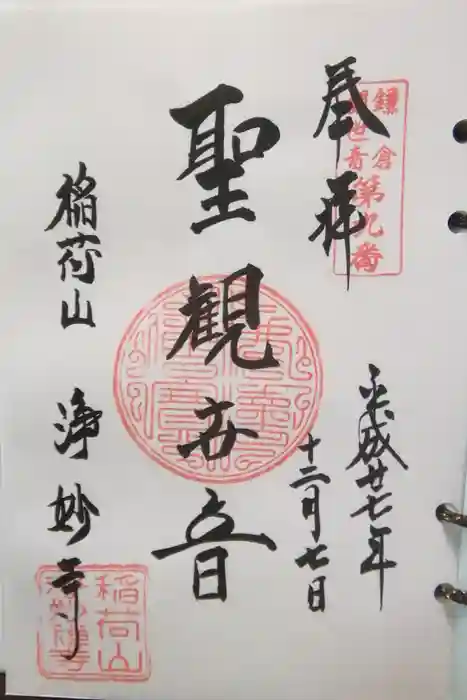 奉拝
鎌倉
観世音
第九番
平成廿七年
十二月七日
聖觀世音
稲荷山 浄妙寺
稲荷山
浄妙禅寺